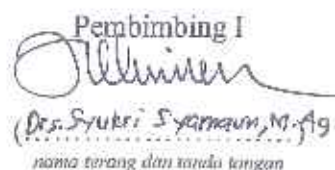 Pembimbing I
(Drs. Syukri Syamaun, M.Ag
nama terang dan tanda tangan